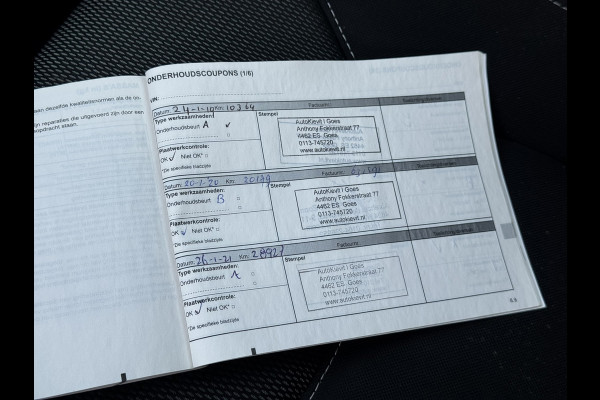 aan dezelfde kwaliteitsnormen als de on-
ijn reparaties die uitgevoerd zijn door een
opdracht staan.
ONDERHOUDSCOUPONS (1/6)
VIN:
Datum: 24-1-19 Km: 10364 Factuurnr.:
Type werkzaamheden: Stempel
Onderhoudsbeurt A ✓
Plaatwerkcontrole:
OK ✓ Niet OK*
*Zie specifieke bladzijde
AutoKievit | Goes
Anthony Fokkerstraat 77
4462 ES Goes
0113-745720
www.autokievit.nl
Datum: 20-1-20 Km: 20179 Factuurnr.:
Type werkzaamheden: Stempel
Onderhoudsbeurt B
Plaatwerkcontrole:
OK ✓ Niet OK*
*Zie specifieke bladzijde
AutoKievit | Goes
Anthony Fokkerstraat 77
4462 ES Goes
0113-745720
www.autokievit.nl
Datum: 26-1-21 Km: 28927 Factuurnr.:
Type werkzaamheden: Stempel
Onderhoudsbeurt A
Plaatwerkcontrole:
OK ✓ Niet OK*
*Zie specifieke bladzijde
AutoKievit | Goes
Anthony Fokkerstraat 77
4462 ES Goes
0113-745720
www.autokievit.nl